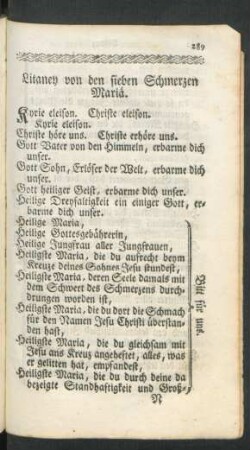 289
Litaney von den sieben Schmerzen
Mariä.
Kyrie eleison. Christe eleison.
Kyrie eleison.
Christe höre uns. Christe erhöre uns.
Gott Vater von den Himmeln, erbarme dich
unser.
Gott Sohn, Erlöser der Welt, erbarme dich
unser.
Gott heiliger Geist, erbarme dich unser.
Heilige Dreyfaltigkeit ein einiger Gott, er-
barme dich unser.
Heilige Maria,
Heilige Gottesgebährerin,
Heilige Jungfrau aller Jungfrauen,
Heiligste Maria, die du aufrecht beym
Kreuze deines Sohnes Jesu stundest,
Heiligste Maria, deren Seele damals mit
dem Schwert des Schmerzens durch-
drungen worden ist,
Heiligste Maria, die du dort die Schmach
für den Namen Jesu Christi überstan-
den hast,
Heiligste Maria, die du gleichsam mit
Jesu ans Kreuz angeheftet, alles, was
er gelitten hat, empfandest,
Heiligste Maria, die du durch deine da
bezeigte Standhaftigkeit und Groß-
Bitt für uns.
N